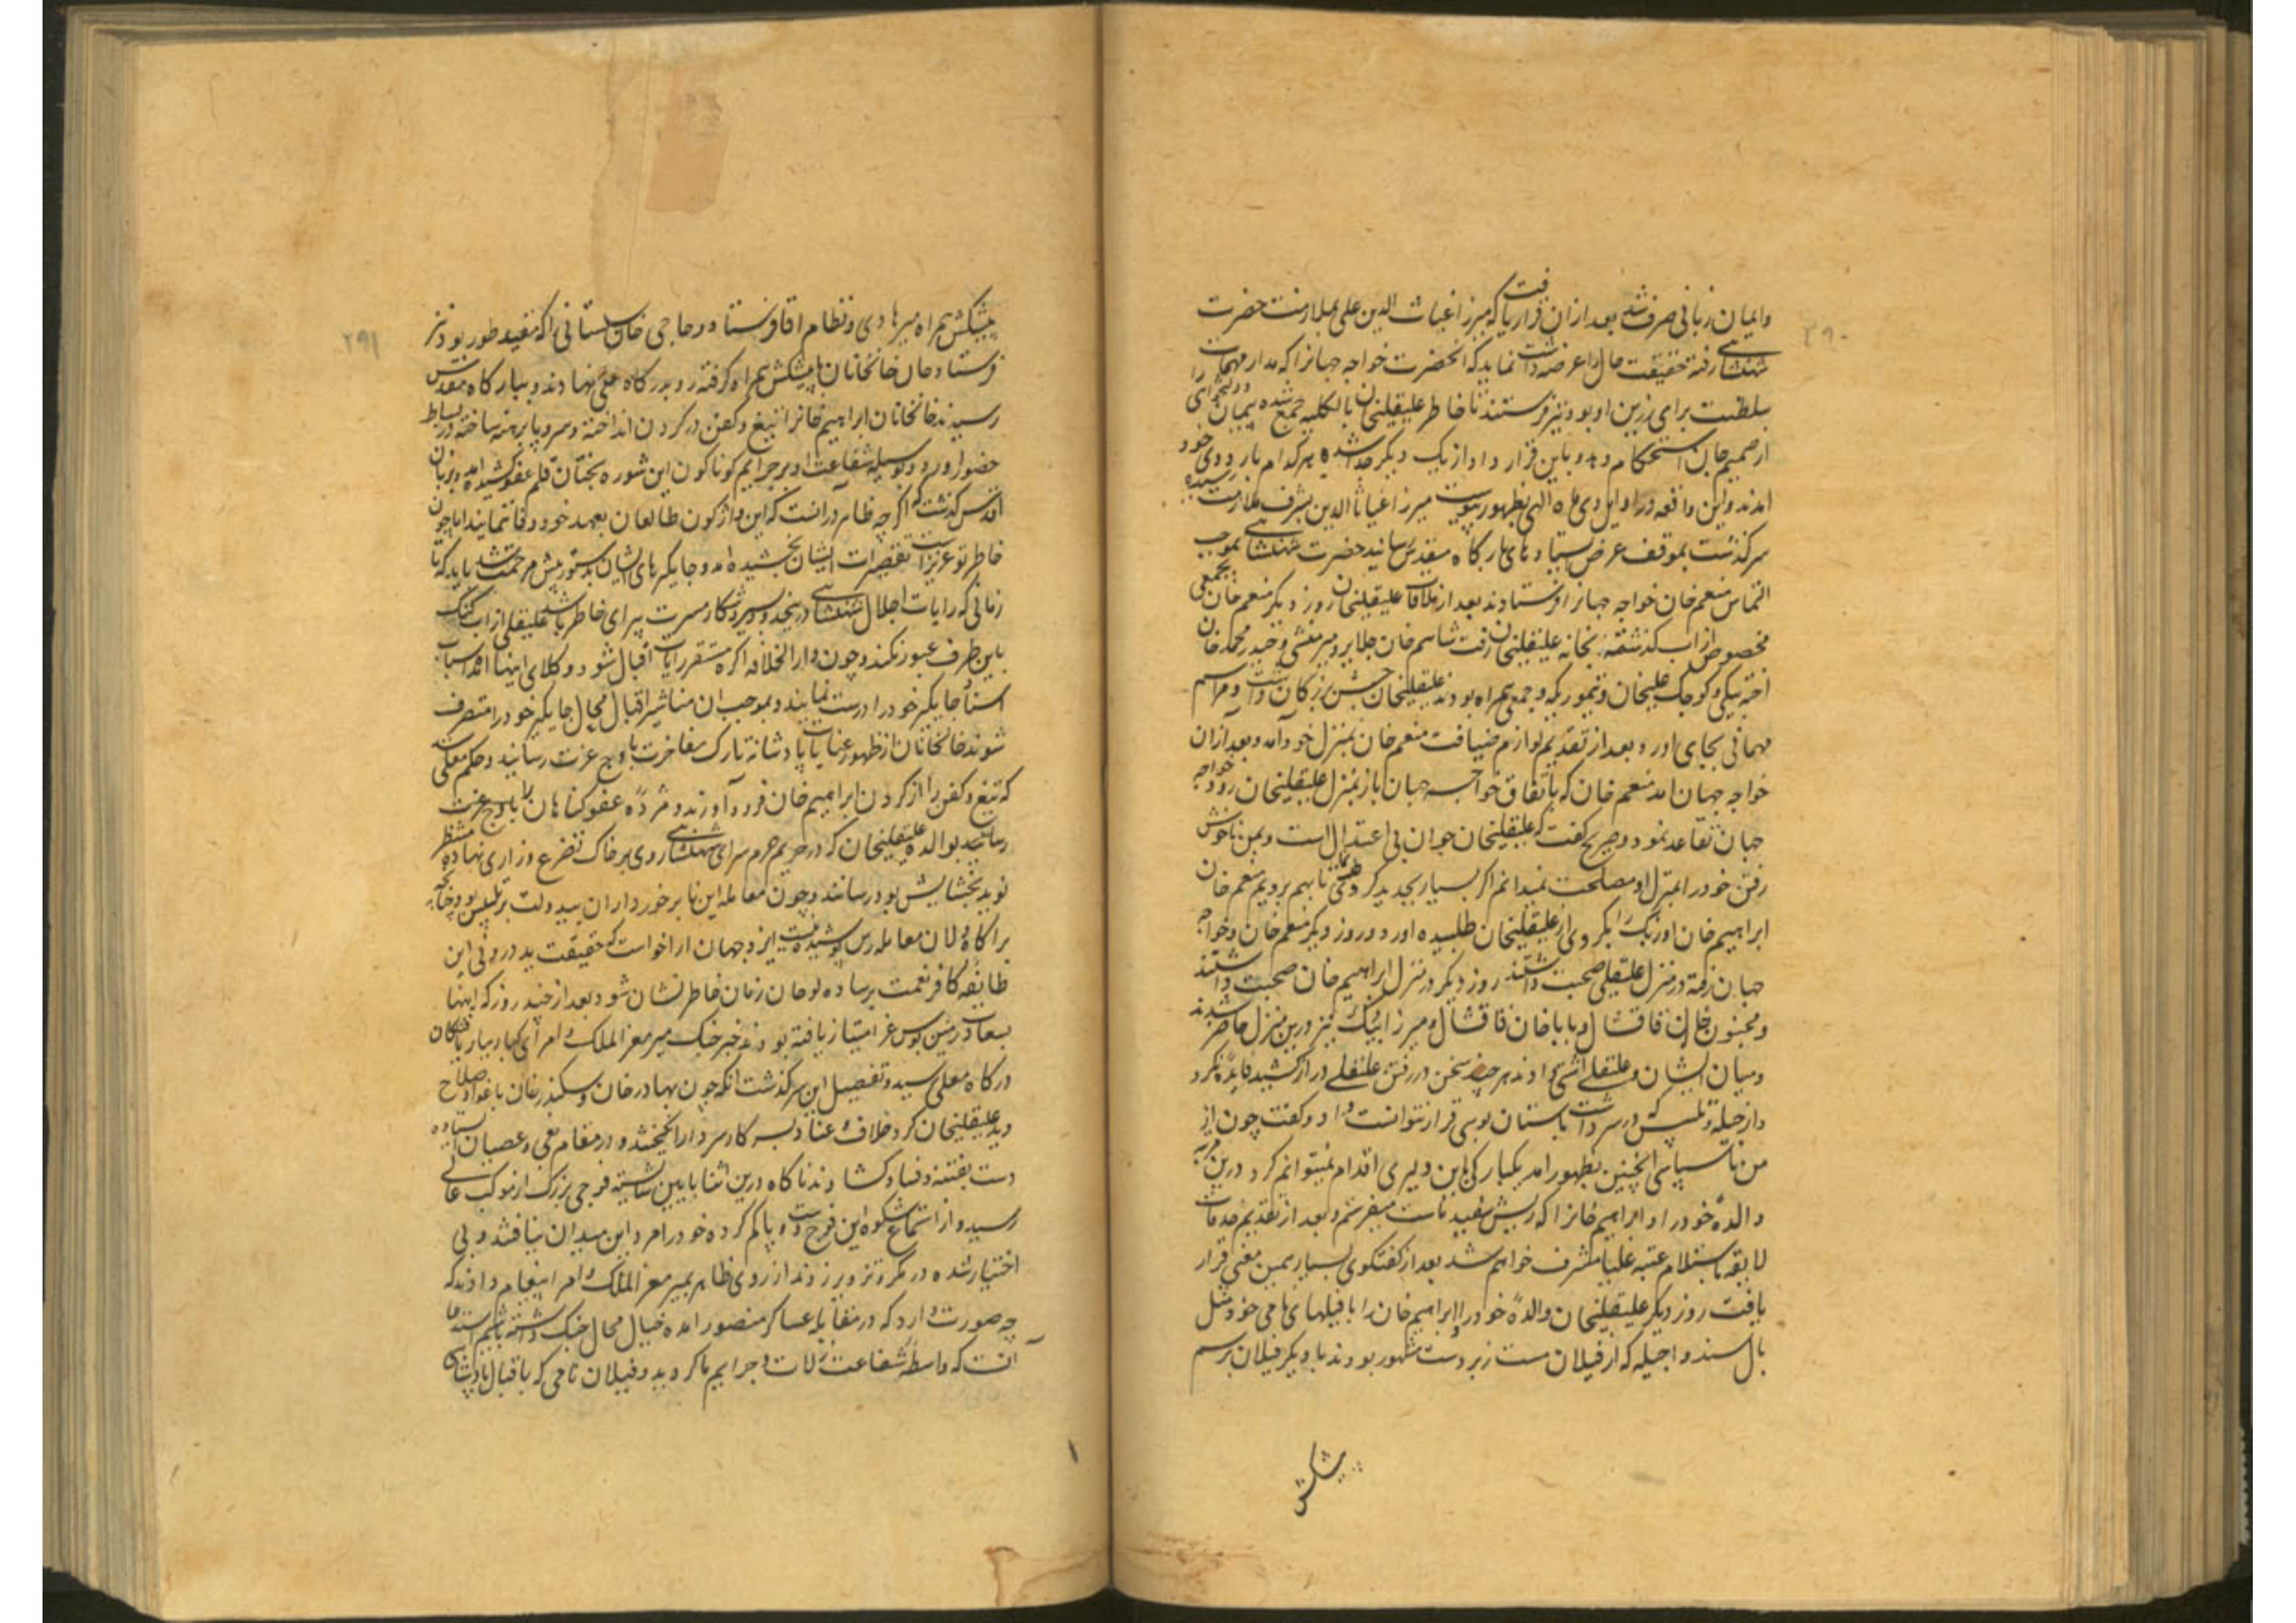 ۲۹۰
وایمان زبانی صرف شد بعد ازان قرار یافت که میرزا غیاث الدین علی بملازمت حضرت
شهنشاهی رفته حقیقت حال را عرضه داشت نماید که انحضرت خواجه جهانرا که مدار مهمات
سلطنت برای رزین او بود نیز فرستند تا خاطر علیقلیخان بالکلیه جمع شده پیمان را
از صمیم جان استحکام دهد و باین قرار داد از یک دیکر جدا شده هر کدام باردوی خود
امدند و این واقعه در اوایل دی ماه الهی بظهور پیوست میرزا غیاث الدین بشرف ملازمت رسیده
سرکذشت بموقف عرض ایستادهای بارکاه مقدس رسانید حضرت شهنشاهی بموجب
التماس منعم خان خواجه جهانرا فرستادند بعد از ملاقات علیقلیخان روز دیکر منعم خان بجمعی
مخصوص از اب کذشته بخانه علیقلیخان رفت شاهم خان جلایر و میر منشی و حیدر محمد خان
اخته بیکی و کوجک علیخان و تیمور یکه و جمعی همراه بودند علیقلیخان جشن بزرکان داشت و مراسم
مهمانی بجای اورد و بعد از تقدیم لوازم ضیافت منعم خان بمنزل خود آمد و بعد ازان
خواجه جهان امد منعم خان که باتفاق خواجه جهان باز بمنزل علیقلیخان رود خواجه
جهان تقاعد نمود و صریح کفت که علیقلیخان جوان بی اعتدال است و بمن ناخوش
رفتن خود را بمنزل او مصلحت نمیدانم اکر بسیار بجدید کروی تا بهم برویم منعم خان
ابراهیم خان اوزبک را بکروی از علیقلیخان طلبیده اورد و روز دیکر منعم خان و خواجه
جهان رفته در منزل علیقلی صحبت داشتند روز دیکر در منزل ابراهیم خان صحبت داشتند
و مجنون خان قاقشال و باباخان قاقشال و میرزا بیک نیز درین منزل حاضر شدند
و میان ایشان و علیقلی اشتی دادند هر چند سخن در رفتن علیقلی دراز کشید فایده نکرد
و از حیله و تلبیس که در سر داشت باستان بوسی قرار نتوانست داد و کفت چون از
من ناسپاسی اینچنین بظهور امد یکبارکی باین دلیری اقدام نمیتوانم کرد درین مرتبه
والده خود را و ابراهیم خانرا که ریش سفید ماست میفرستم و بعد از تقدیم خدمات
لایقه باستلام عتبه علیا مشرف خواهم شد بعد از کفتکوی بسیار بهمین معنی قرار
یافت روز دیکر علیقلیخان والده خود را و ابراهیم خان را با فیلهای نامی خود مثل
بال سندر و اجیله که از فیلان مست زبردست مشهور بودند با دیکر فیلان برسم
پیشکش
۲۹۱
پیشکش همراه میر هادی و نظام اقا فرستاد و حاجی خان سیستانی را که مقید طور بود نیز
فرستاد و خان خانخانان با پیشکش همراه کرفته رو بدرکاه معلی نهادند و ببارکاه مقدس
رسیدند خانخانان ابراهیم خانرا تیغ و کفن در کردن انداخته و سر و پا برهنه ساخته در بساط
حضور اورد و بوسیله شفاعت او بر جرایم کوناکون این شوره بختان قلم عفو کشیده امد و بزبان
اقدس کذشت که اکر چه ظاهر درانست که این واژکون طالعان بعهد خود وفا نمایند اما چون
خاطر تو عزیز است تقصیرات ایشان بخشیده امد و جایکرهای ایشان بدستور پیش مرحمت شد باید که تا
زمانی که رایات اجلال شهنشاهی درینحدود بسیر و شکار مسرت پیرای خاطر باشد علیقلی از اب کنک
باین طرف عبور نکند و چون دارالخلافه اکره مستقر رایات اقبال شود وکلای اینها امده اسباب
اسناد جایکر خود را درست نمایند و بموجب ان مناشیر اقبال محال جایکر خود را متصرف
شوند خانخانان از ظهور عنایات پادشاهانه تارک مفاخرت باوج عزت رسانید و حکم معلی شد
که تیغ و کفن را از کردن ابراهیم خان فرود آورند و مژده عفو کناهان را باوج عزت
رسانید بوالده علیقلیخان که در حریم حرم سرای شهنشاهی روی بر خاک تضرع و زاری نهاده منتظر
نوید بخشایش بود رسانند و چون معامله این نابرخورداران بیدولت بر تلبیس بود چنانچه
بر اکاه دلان معامله رس پوشیده نیست ایزد جهان ارا خواست که حقیقت بددرونی این
طایفه کافر نعمت بر ساده لوحان زمان خاطر نشان شود بعد از چند روز که اینها
بسعادت زمین بوس عز امتیاز یافته بودند خبر جنک میر معز الملک و امرای کبار ببار یافتکان
درکاه معلی رسید و تفصیل این سرکذشت انکه چون بهادر خان و سکندر خان باغوا و صلاح
دید علیقلیخان کرد خلاف و عناد بسر کار سردار انکیختند و در مقام بغی و عصیان ایستاده
دست بفتنه و فساد کشادند ناکاه درین اثنا بایین شایسته فوجی بزرک از موکب عالی
رسید و از استماع شکوه این فوج دست و پا کم کرده خود را مرد این میدان نیافتند و بی
اختیار شده در مکر و تزویر زدند از روی ظاهر بمیر معز الملک و امرا پیغام دادند که
چه صورت دارد که در مقابله عساکر منصور امده خیال محال جنک داشته باشیم استدعا
آنست که واسطه شفاعت زلات و جرایم ما کردید و فیلان نامی که باقبال پادشاهی